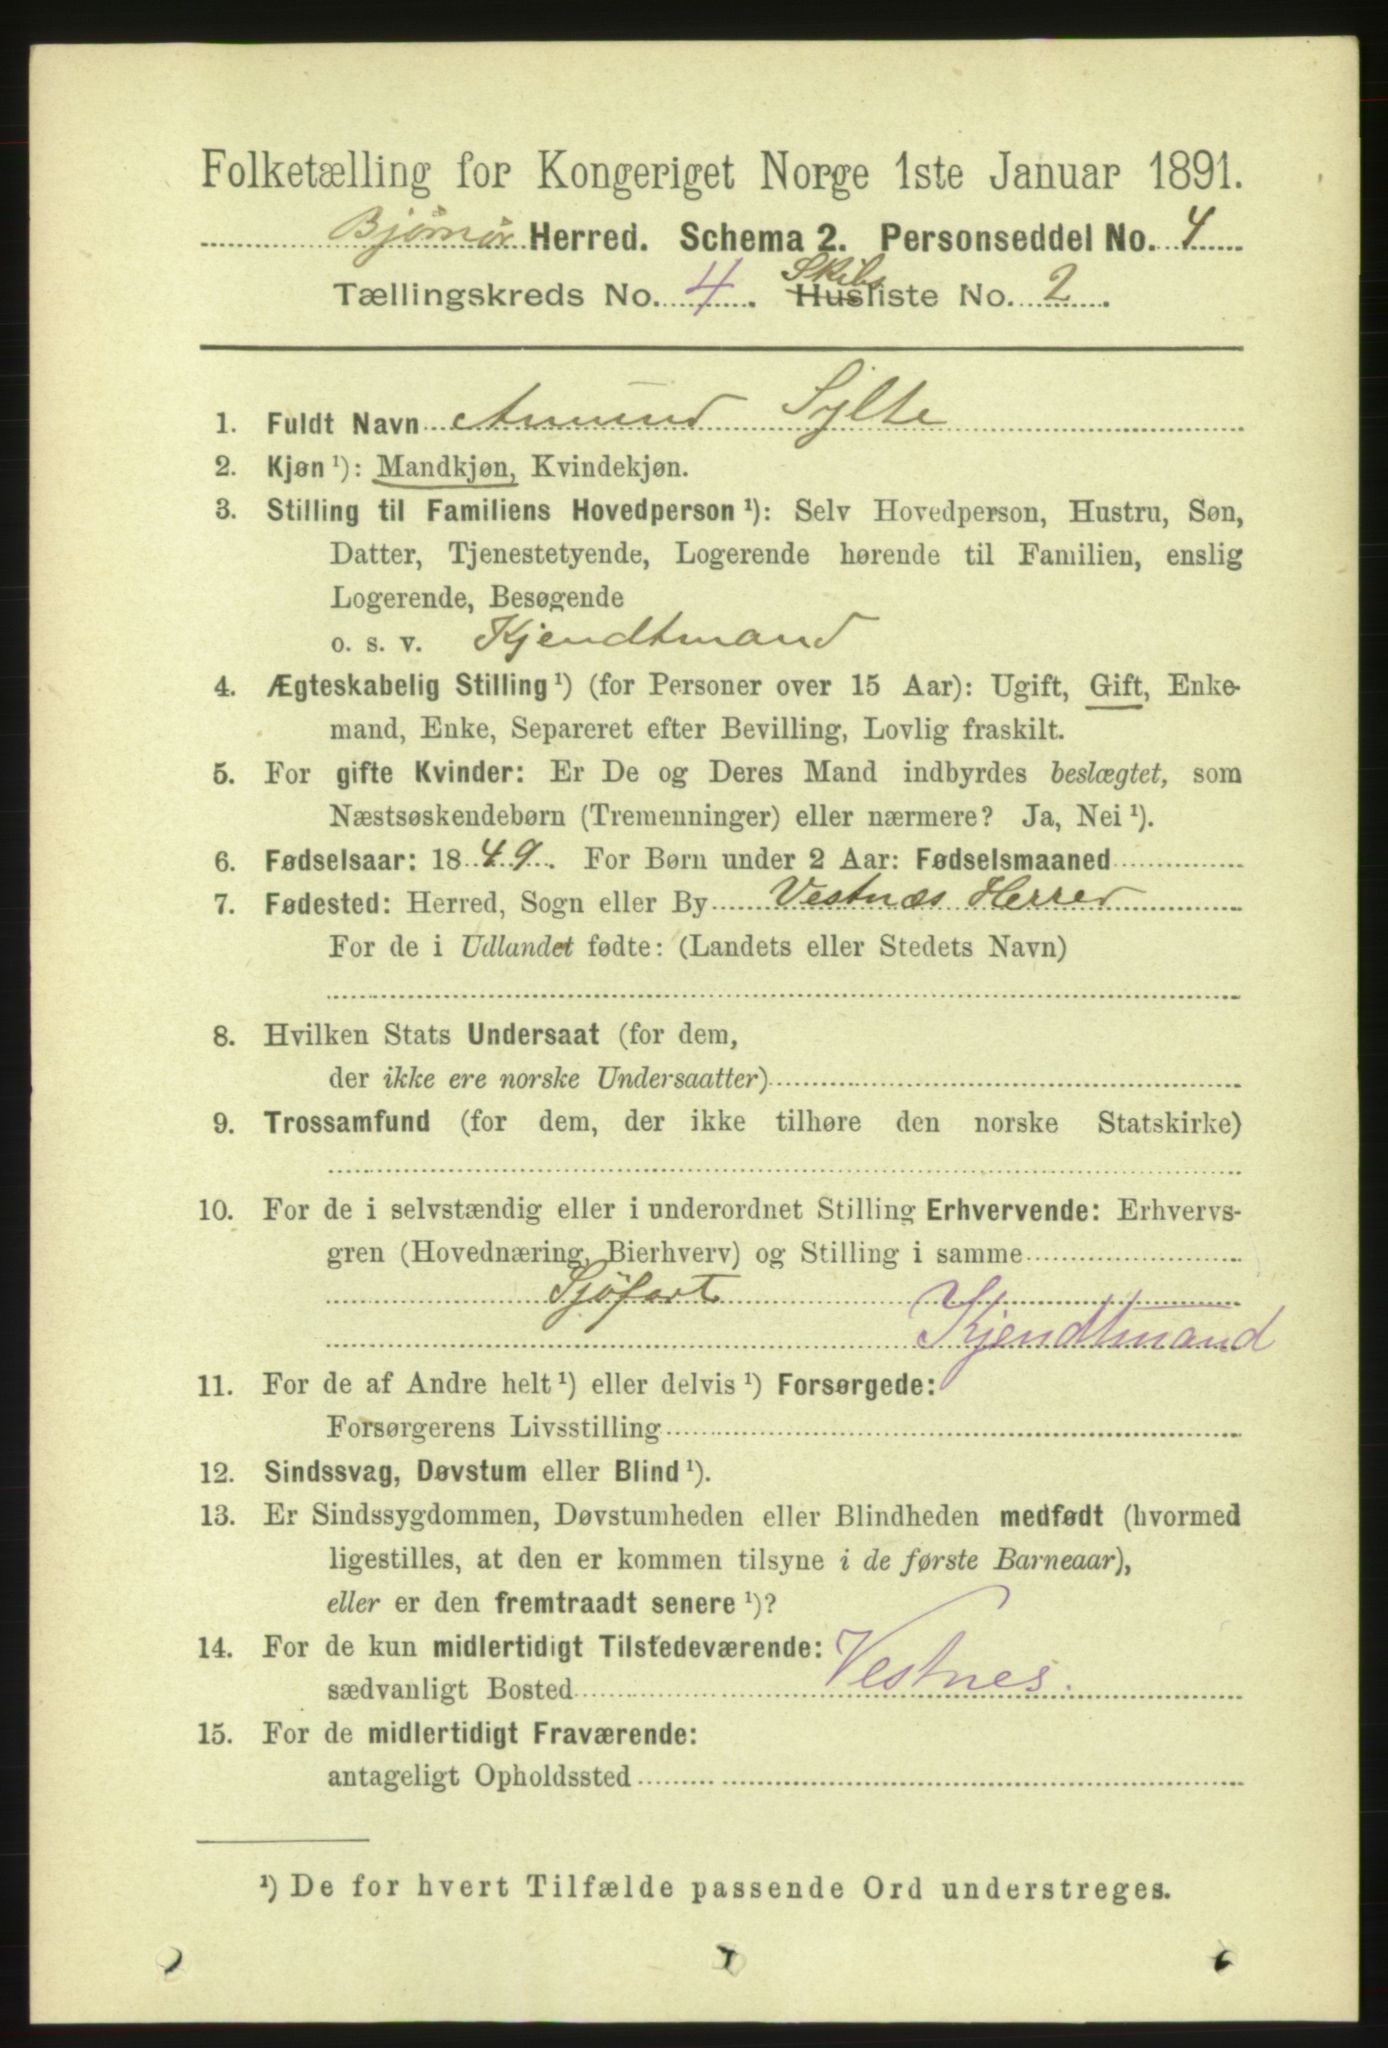 Folketælling for Kongeriget Norge 1ste Januar 1891.
Bjørnør Herred. Schema 2. Personseddel No. 4
Tællingskreds No. 4. Skibs Husliste No. 2.
1. Fuldt Navn Amund Sylte
2. Kjøn ¹): Mandkjøn, Kvindekjøn.
3. Stilling til Familiens Hovedperson ¹): Selv Hovedperson, Hustru, Søn,
Datter, Tjenestetyende, Logerende hørende til Familien, enslig
Logerende, Besøgende
o. s. v. Kjendtmand
4. Ægteskabelig Stilling ¹) (for Personer over 15 Aar): Ugift, Gift, Enke-
mand, Enke, Separeret efter Bevilling, Lovlig fraskilt.
5. For gifte Kvinder: Er De og Deres Mand indbyrdes beslægtet, som
Næstsøskendebørn (Tremenninger) eller nærmere? Ja, Nei ¹).
6. Fødselsaar: 1849. For Børn under 2 Aar: Fødselsmaaned
7. Fødested: Herred, Sogn eller By Vestnæs Herred
For de i Udlandet fødte: (Landets eller Stedets Navn)
8. Hvilken Stats Undersaat (for dem,
der ikke ere norske Undersaatter)
9. Trossamfund (for dem, der ikke tilhøre den norske Statskirke)
10. For de i selvstændig eller i underordnet Stilling Erhvervende: Erhvervs-
gren (Hovednæring, Bierhverv) og Stilling i samme
Sjøfart
Kjendtmand
11. For de af Andre helt ¹) eller delvis ¹) Forsørgede:
Forsørgerens Livsstilling
12. Sindssvag, Døvstum eller Blind ¹).
13. Er Sindssygdommen, Døvstumheden eller Blindheden medfødt (hvormed
ligestilles, at den er kommen tilsyne i de første Barneaar),
eller er den fremtraadt senere ¹)?
14. For de kun midlertidigt Tilstedeværende:
sædvanligt Bosted Vestnes.
15. For de midlertidigt Fraværende:
antageligt Opholdssted
¹) De for hvert Tilfælde passende Ord understreges.